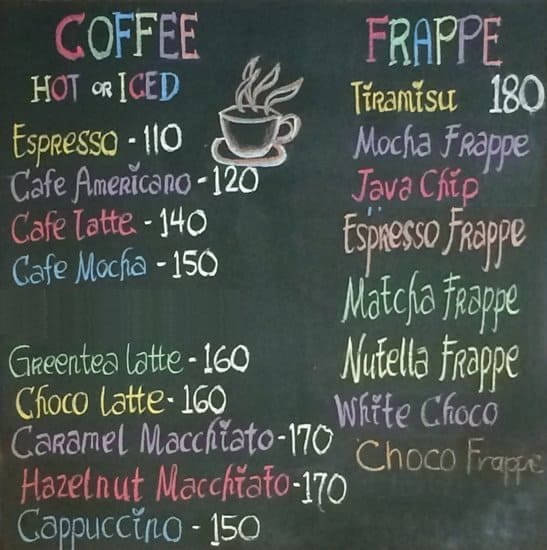 COFFEE
HOT OR ICED
ESPRESSO - 110
Cafe Americano - 120
Cafe Latte - 140
Cafe Mocha - 150
Greentea Latte - 160
Choco Latte - 160
Caramel Macchiato - 170
Hazelnut Macchiato - 170
Cappuccino - 150
FRAPPE
Tiramisu 180
Mocha Frappe
Java Chip
Espresso Frappe
Matcha Frappe
Nutella Frappe
White Choco
Choco Frappe